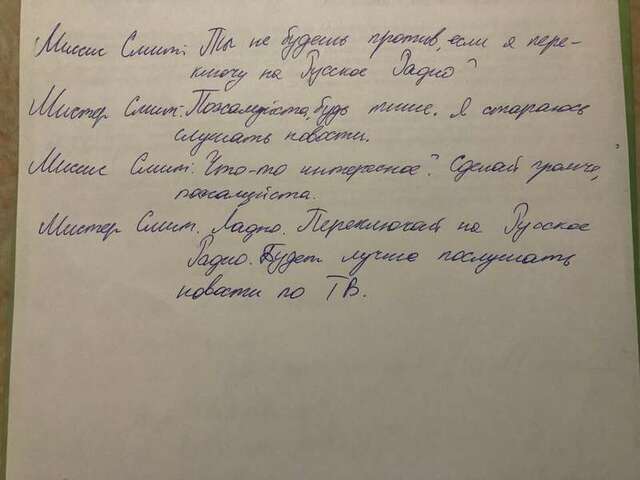 Миссис Смит: Ты не будешь против, если я пере-
ключу на Русское Радио?
Мистер Смит: Пожалуйста, будь тише. Я стараюсь
слушать новости.
Миссис Смит: Что-то интересное? Сделай громче,
пожалуйста.
Мистер Смит. Ладно. Переключай на Русское
Радио. Будет лучше послушать
новости по ТВ.